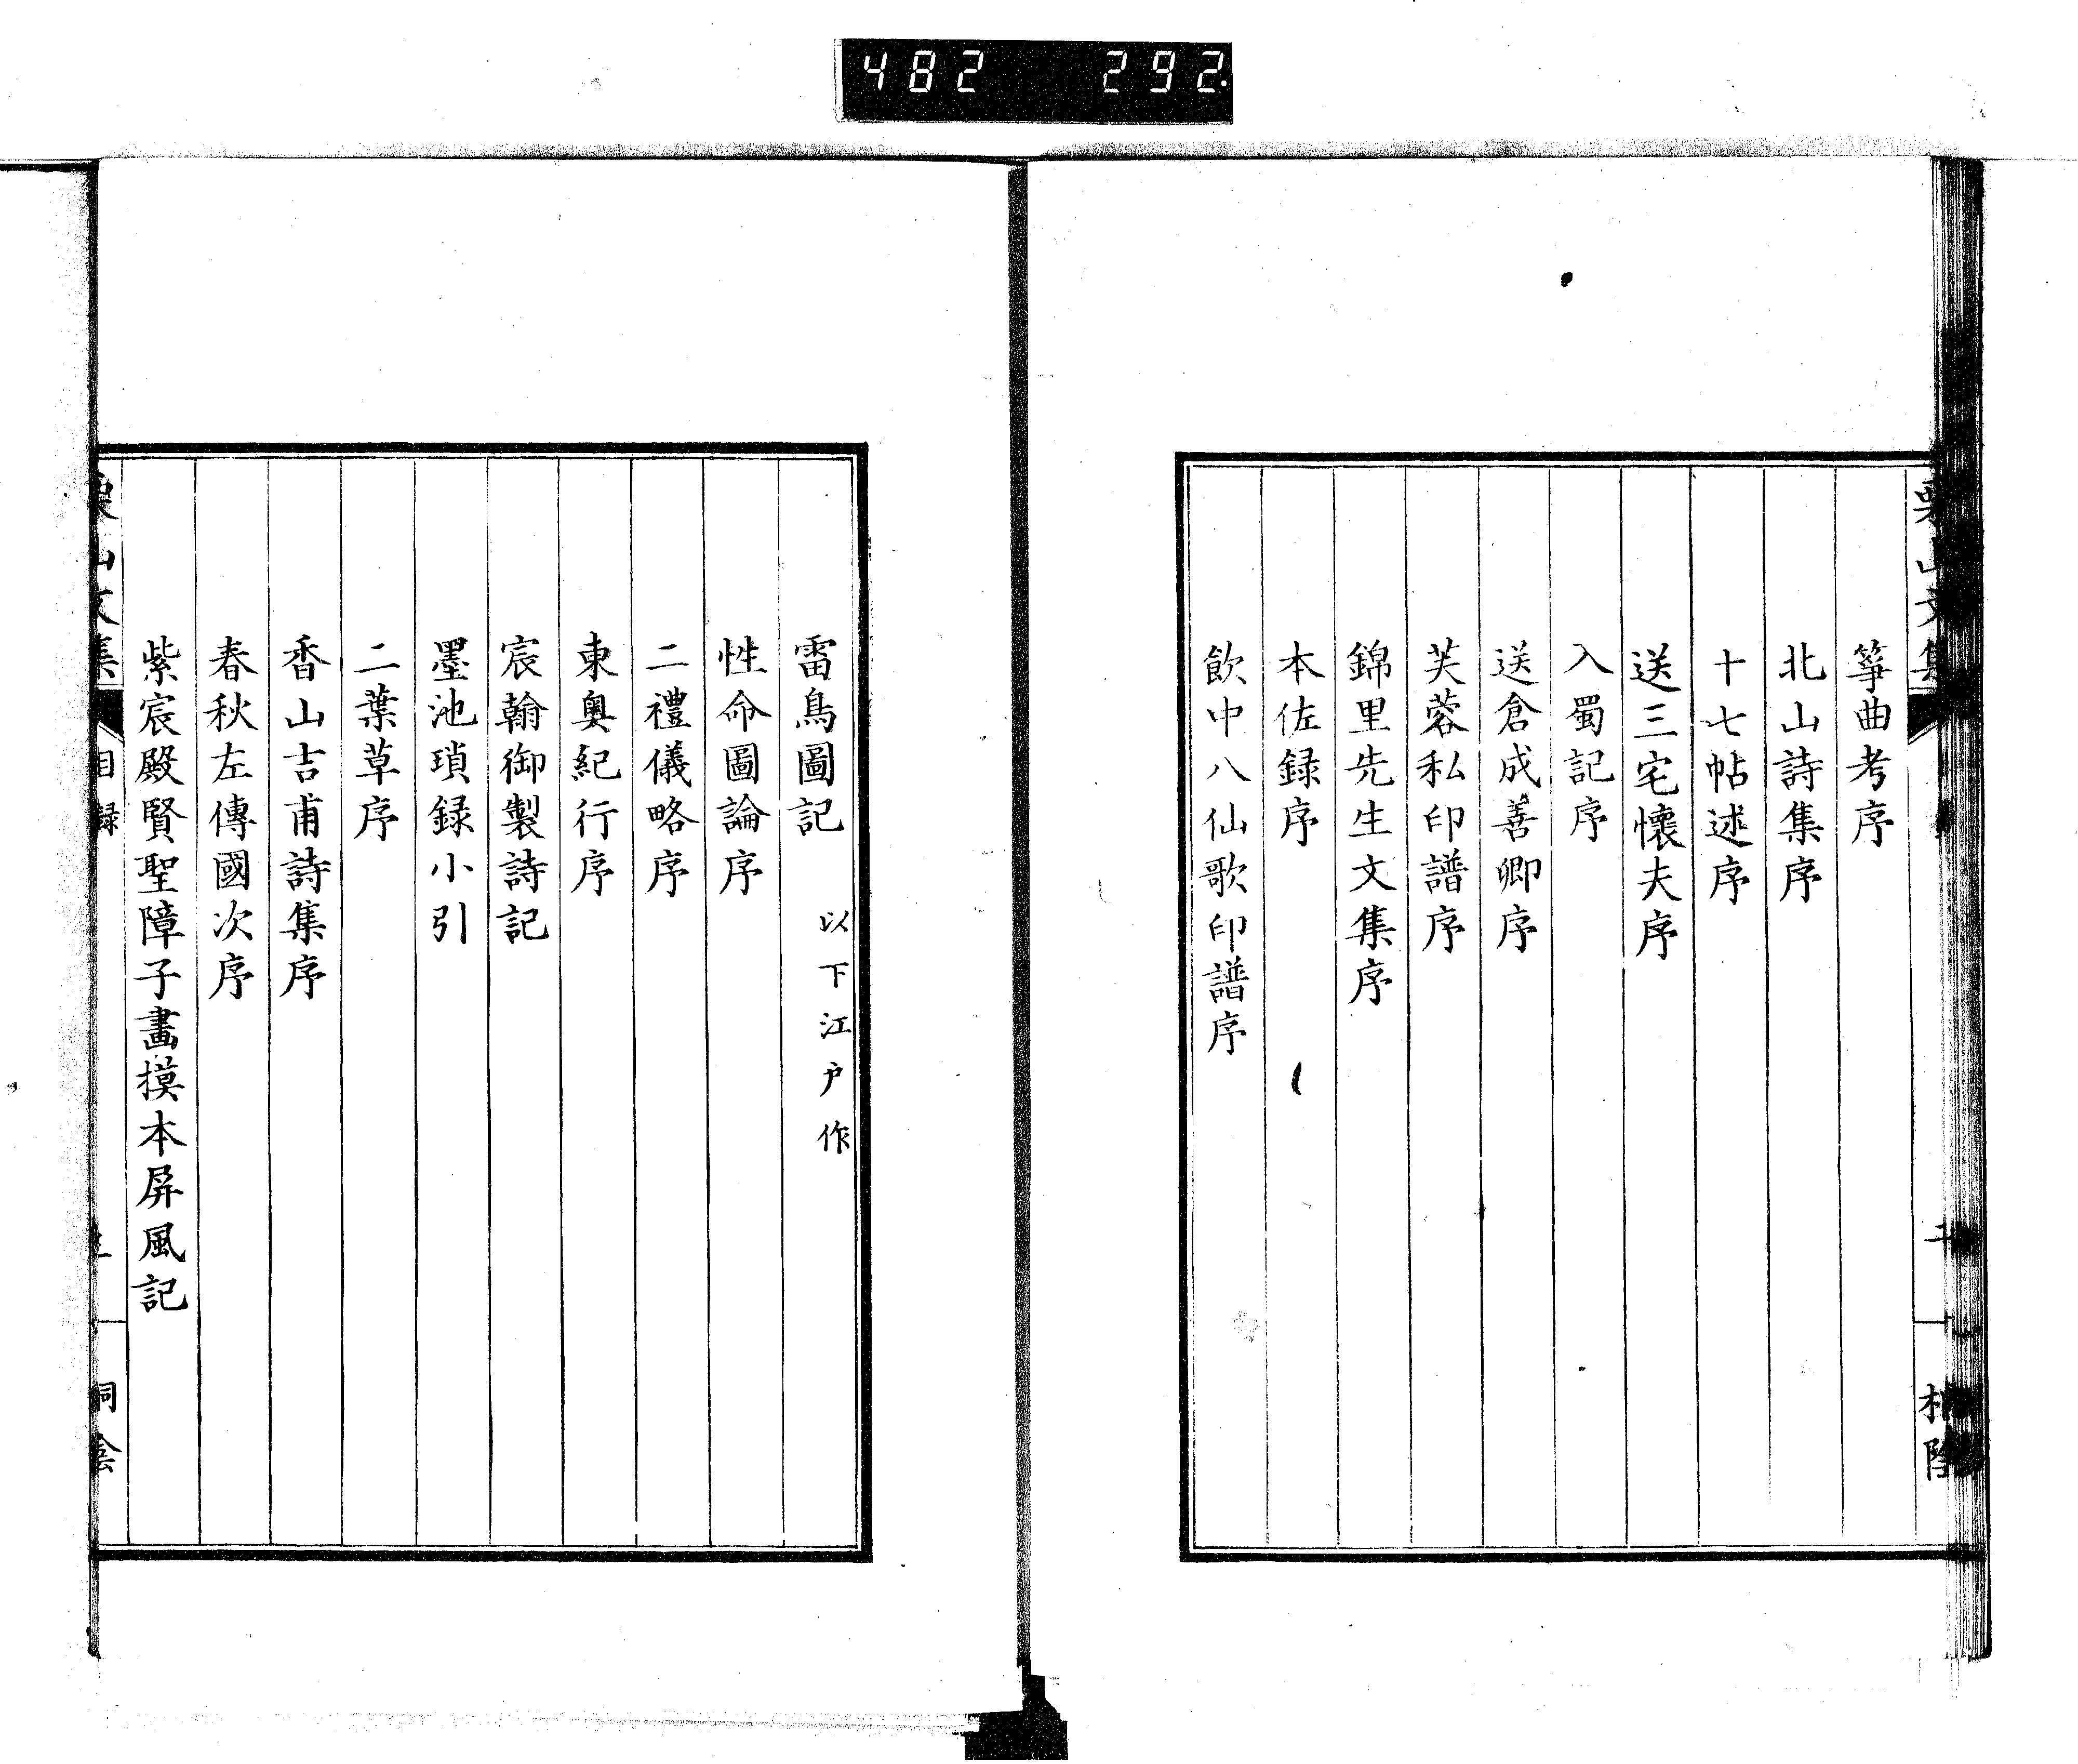 482 292
栗山文集
箏曲考序
北山詩集序
十七帖述序
送三宅懷夫序
入蜀記序
送倉成善卿序
芙蓉私印譜序
錦里先生文集序
本佐録序
飲中八仙歌印譜序
雷鳥圖記 以下江户作
性命圖論序
二禮儀略序
東奧紀行序
宸翰御製詩記
墨池瑣録小引
二葉草序
香山吉甫詩集序
春秋左傳國次序
紫宸殿賢聖障子畫摸本屏風記
栗山文集 目録